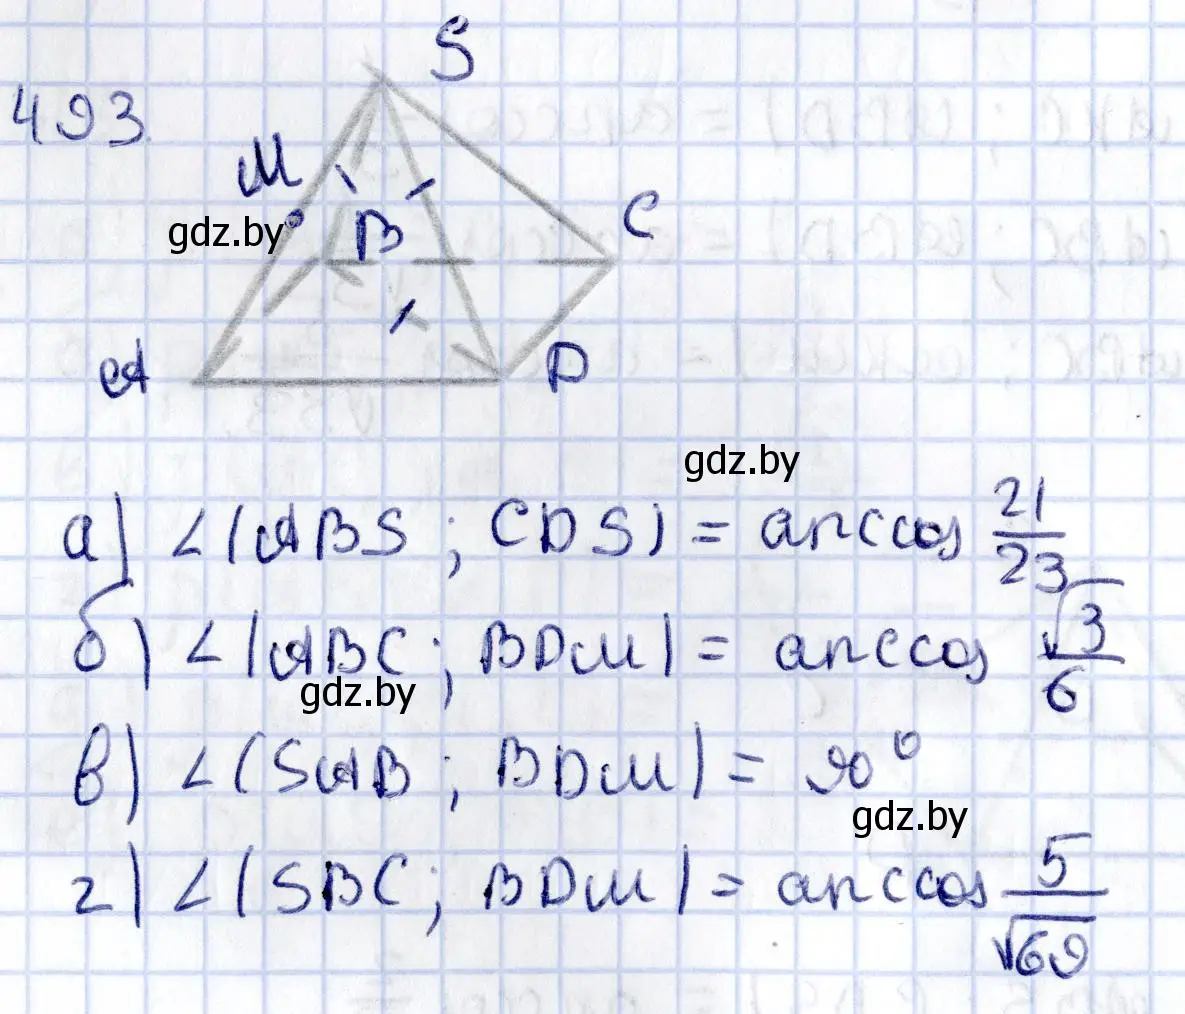 S
493.
M
gdz.by
B
C
A
D
gdz.by
а) ∠(ABS ; CDS) = arccos 21/23
б) ∠(ABC ; BDM) = arccos √3/6
gdz.by
в) ∠(SAB ; BDM) = 90°
gdz.by
г) ∠(SBC ; BDM) = arccos 5/√69